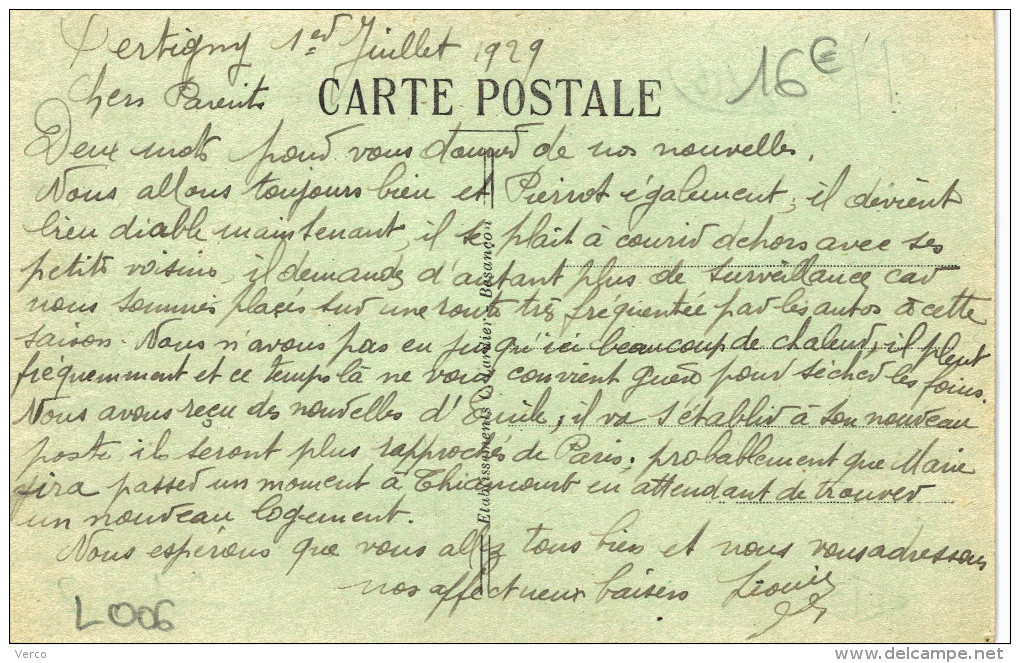 Xertigny 1er Juillet 1929
16€
Chers Parents
CARTE POSTALE
Deux mots pour vous donner de nos nouvelles.
Nous allons toujours bien et Pierrot également, il devient
bien diable maintenant, il se plait à courir dehors avec ses
petits voisins il demande d'autant plus de surveillance car
nous sommes placés sur une route très fréquentée par les autos à cette
saison. Nous n'avons pas eu jusqu'ici beaucoup de chaleur, il pleut
fréquemment et ce temps là ne vous convient guère pour sécher les foins.
Nous avons reçu des nouvelles d'Emile, il va s'établir à son nouveau
poste, ils seront plus rapprochés de Paris; probablement que Marie
ira passer un moment à Thiamont en attendant de trouver
un nouveau logement.
Nous espérons que vous allez tous bien et nous vous adressons
nos affectueux baisers Léonie
L006
Etablissements C. Lardier - Besançon
Verco
http://www.delcampe.net